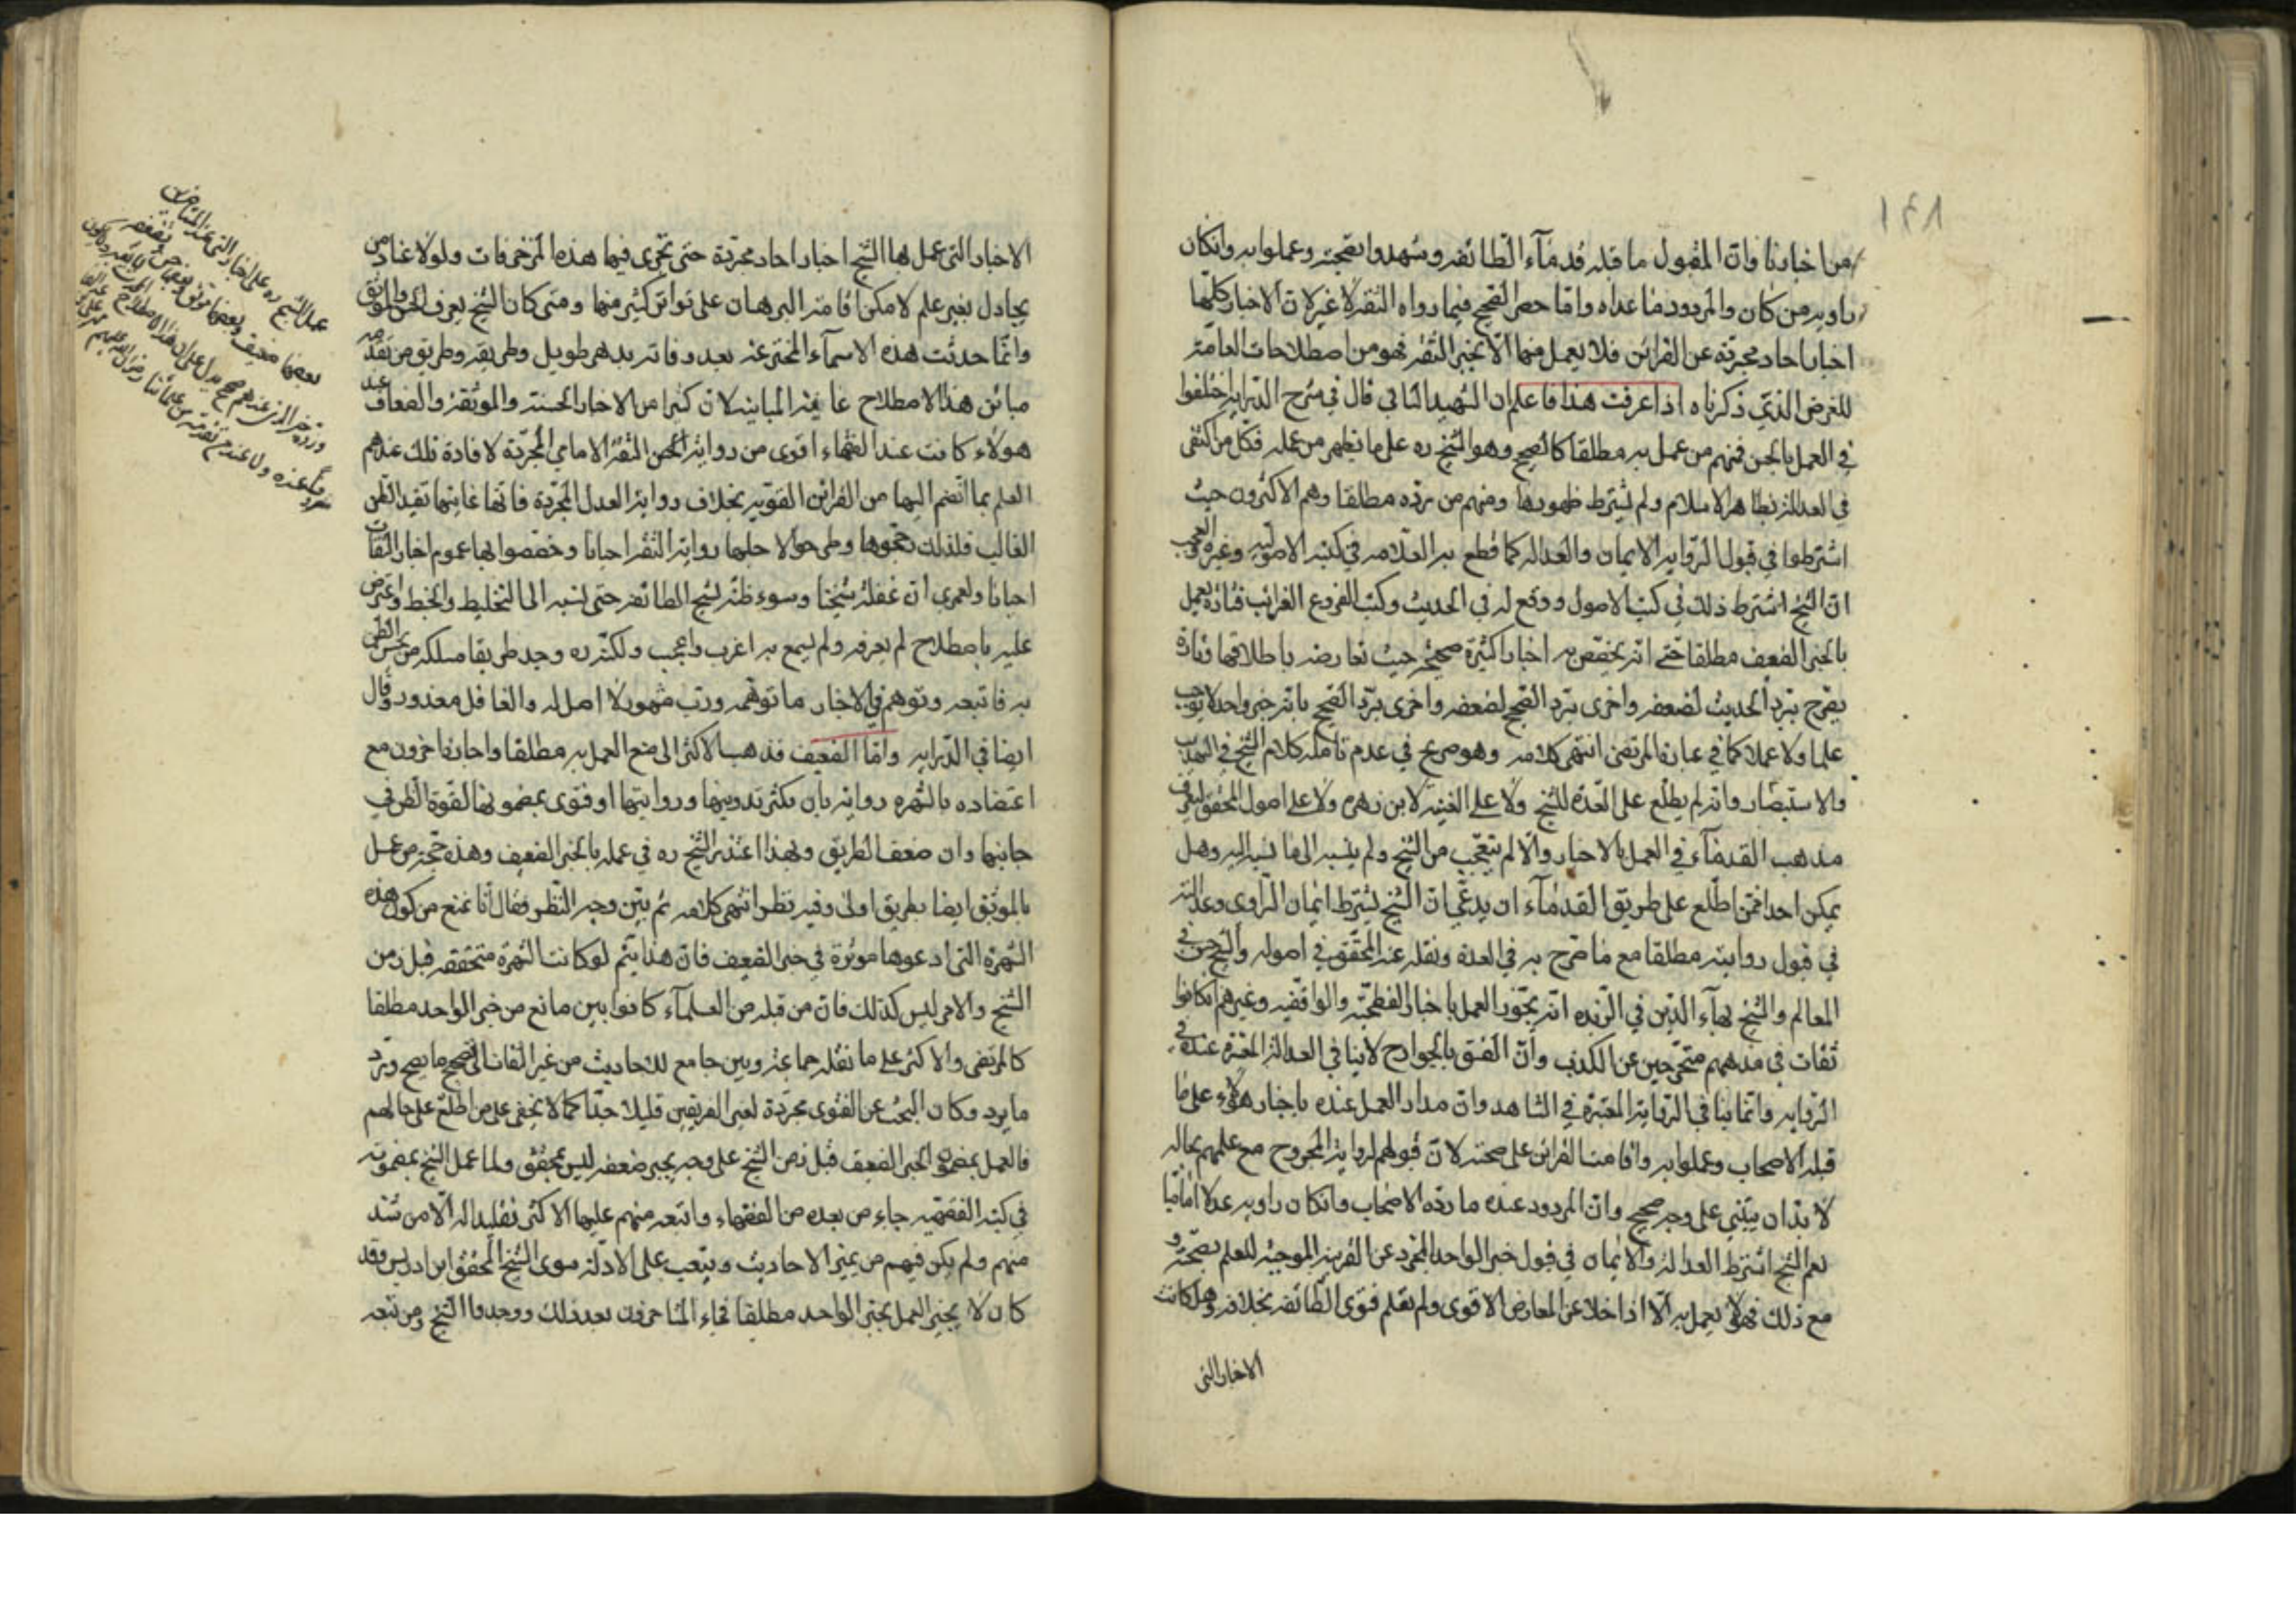 ١٤٨
من اخبارنا وان المقبول ما قبله قدمآء الطائفه وشهدوا بصحته وعملوا به وان كان
راويه من كان والمردود ما عداه واما حصر الصحيح فيما رواه الثقه لا غير لان الاخبار كلها
اخبار احاد مجردة عن القرائن فلا يعمل منها الا بخبر الثقه فهو من اصطلاحات العامة
للغرض الذي ذكرناه اذا عرفت هذا فاعلم ان الشهيد الثاني قال في شرح الدرايه اختلفوا
في العمل بالحسن فمنهم من عمل به مطلقا كالصحيح وهو الشيخ ره على ما يظهر من عمله فكل من اكتفى
في العدالة بظاهر الاسلام ولم يشترط ظهورها ومنهم من يرده مطلقا وهم الاكثرون حيث
اشترطوا في قبول الروايه الايمان والعداله كما قطع به العلامه في كتبه الاصوليه وغيره والعجب
ان الشيخ اشترط ذلك في كتب الاصول ووقع له في الحديث وكتب الفروع الغرائب فتارة يعمل
بالخبر الضعيف مطلقا حتى انه يخصص به اخبارا كثيرة صحيحه حيث تعارضه باطلاقها وتارة
يصرح برد الحديث لضعفه واخرى يرد الصحيح لضعفه واخرى برد الصحيح بانه خبر واحد لا يوجب
علما ولا عملا كما في عبارة المرتضى انتهى كلامه وهو صريح في عدم تامله كلام الشيخ في التهذيب
والاستبصار وانه لم يطلع على العدة للشيخ ولا على الغنيه لابن زهره ولا على اصول المحقق ليعرف
مذهب القدمآء في العمل بالاخبار والا لم يتعجب من الشيخ ولم ينسبه الى ما نسبه اليه وهل
يمكن احدا ممن اطلع على طريق القدمآء ان يدعي ان الشيخ يشترط ايمان الراوى وعدالته
في قبول روايته مطلقا مع ما صرح به في العدة ونقله عنه المحقق في اصوله والشيخ حسن في
المعالم والشيخ بهآء الدين في الزبده انه يجوز العمل باخبار الفطحية والواقفيه وغيرهم اذا كانوا
ثقات في مذهبهم متحرجين عن الكذب وان الفسق بالجوارح لا ينافي العدالة المعتبرة عنده في
الروايه وانما ينافي الروايه المعتبرة في الشاهد وان مدار العمل عنده باخبار هؤلاء على ما
قبله الاصحاب وعملوا به واقامت القرائن على صحته لان قبولهم لروايه المجروح مع علمهم بحاله
لا بد ان يبتنى على وجه صحيح وان المردود عنده ما رده الاصحاب وان كان راويه عدلا اماميا
نعم الشيخ اشترط العدالة والايمان في قبول خبر الواحد المجرد عن القرينه الموجبه للعلم بصحته و
مع ذلك فهو لا يعمل به الا اذا خلا عن المعارض الاقوى ولم يعلم فتوى الطائفه بخلافه وهل كانت
الاخبار التى
الاخبار التى عمل بها الشيخ اخبار احاد مجردة حتى يجرى فيها هذه المزخرفات ولولا عناد من
يجادل بغير علم لامكن اقامة البرهان على تواتر كثير منها ومتى كان الشيخ يعرف الحسن والموثق
وانما حدثت هذه الاسمآء المخترعه بعد وفاته بدهر طويل وطريقه وطريق من تقدمه
مبائن هذا الاصطلاح غاية المباينه لان كثيرا من الاخبار الحسنه والموثقه والضعاف عند
هولاء كانت عند القدماء اقوى من رواية الثقة الامامي المجردة لافادة تلك عندهم
العلم بما انضم اليها من القرائن القويه بخلاف رواية العدل المجردة فانها غايتها تفيد الظن
الغالب فلذلك رجحوها وطرحوا لاجلها رواية الثقه احيانا وخصصوا بها عموم اخبار الثقات
احيانا ولعمري ان غفلة شيخنا وسوء ظنه لشيخ الطائفه حتى نسبه الى التخليط والخبط واعترض
عليه باصطلاح لم يعرفه ولم يسمع به اغرب واعجب ولكنه ره وجد طريقا مسلكه من يحسن الظن
به فاتبعه وتوهم في الاخبار ما توهمه ورب مشهور لا اصل له والغافل معذور وقال
ايضا في الدرايه واما الضعيف فذهب الاكثر الى منع العمل به مطلقا واجازه اخرون مع
اعتضاده بالشهره روايه بان يكثر تدوينها وروايتها او فتوى بمضمونها لقوة الظن في
جانبها وان ضعف الطريق وبهذا اعتذر الشيخ ره في عمله بالخبر الضعيف وهذه حجة من عمل
بالموثق ايضا بطريق اولى وفيه نظر انتهى كلامه ثم بين وجه النظر وقال انا نمنع من كون هذه
الشهرة التى ادعوها موثرة في خبر الضعيف فان هذا يتم لو كانت الشهرة متحققه قبل زمن
الشيخ والامر ليس كذلك فان من قبله من العلمآء كانوا بين مانع من خبر الواحد مطلقا
كالمرتضى والاكثر على ما نقله جماعة وبين جامع للاحاديث من غير التفات الى تصحيح ما يصح ورد
ما يرد وكان البحث عن الفتوى مجردة لغير الفريقين قليلا جدا كما لا يخفى على من اطلع على حالهم
فالعمل بمضمون الخبر الضعيف قبل زمن الشيخ على وجه يجبر ضعفه ليس بمحقق ولما عمل الشيخ بمضمونه
في كتبه الفقهيه جاء من بعده من الفقهاء واتبعه منهم عليها الاكثر تقليدا له الا من شذ
منهم ولم يكن فيهم من يميز الاحاديث وينقب على الادلة سوى الشيخ المحقق ابن ادريس وقد
كان لا يجيز العمل بخبر الواحد مطلقا فجاء المتاخرون بعد ذلك ووجدوا الشيخ ومن تبعه
عمل الشيخ ره على اخبار التى عند المتاخرين
بعضها ضعيف وبعضها موثق وبعضها حسن